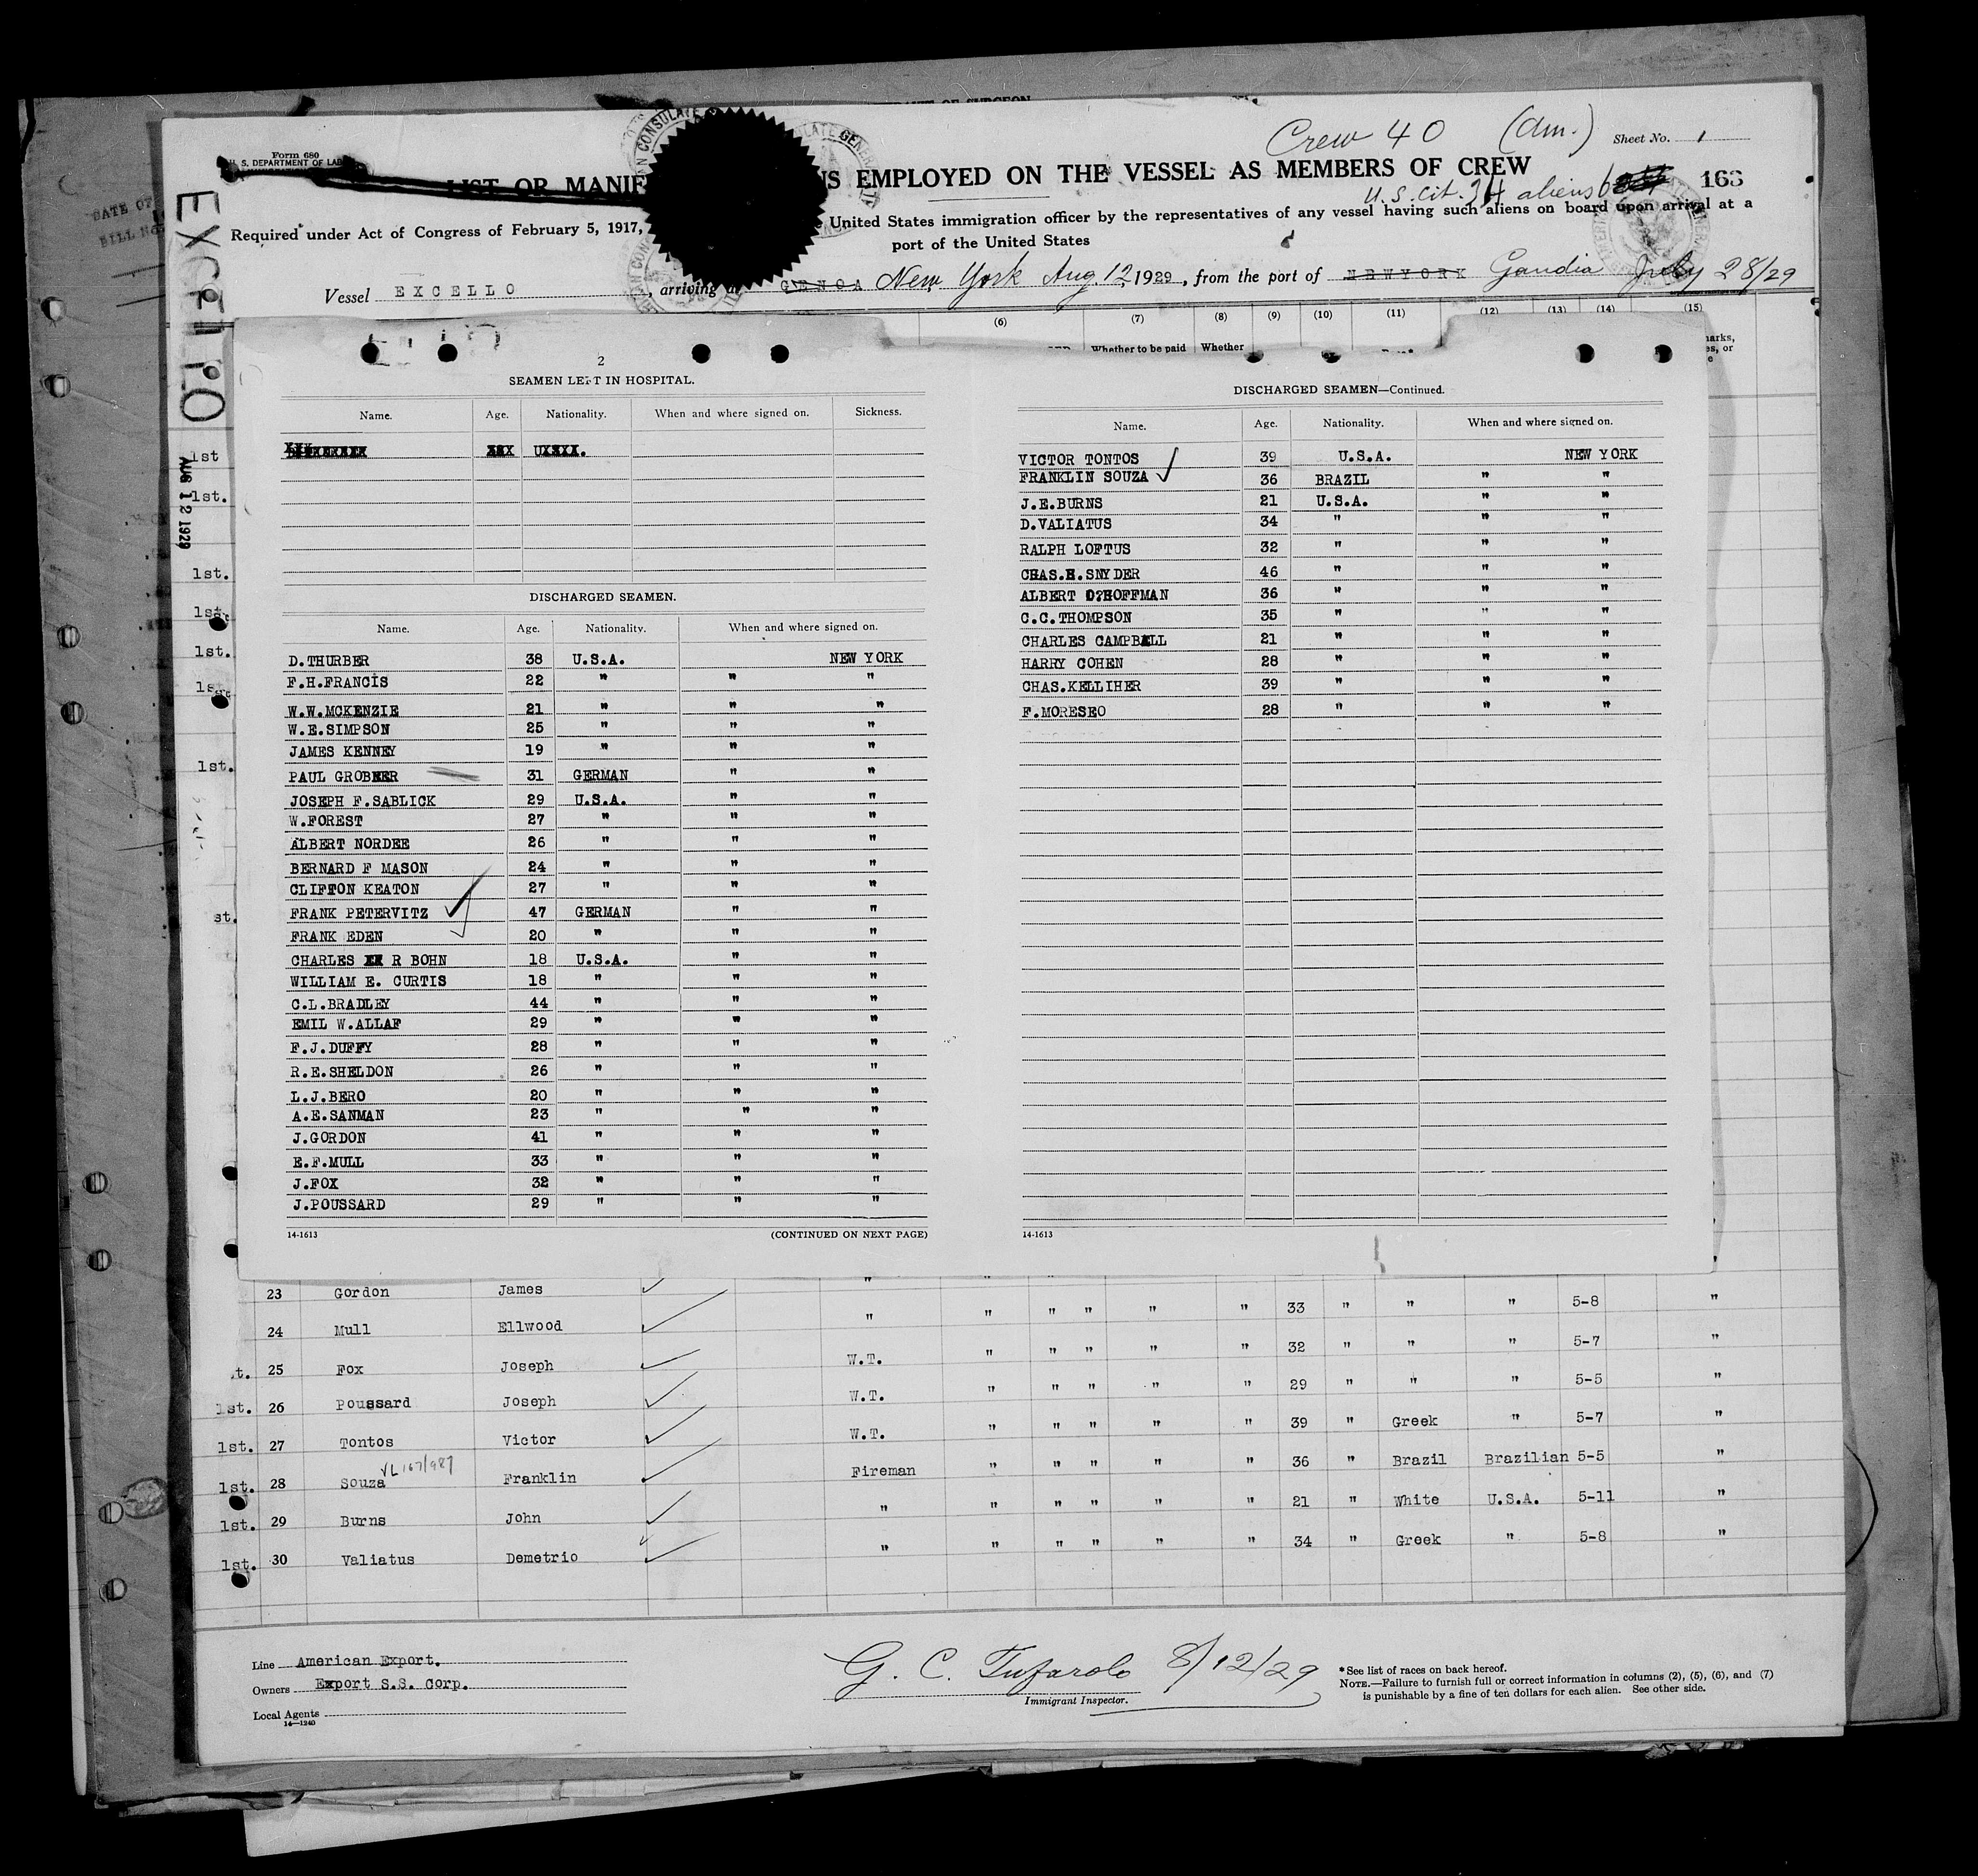 Crew 40 (Am.) Sheet No. 1
Form 680
U. S. DEPARTMENT OF LAB
LIST OR MANIF S EMPLOYED ON THE VESSEL AS MEMBERS OF CREW
U.S. cit. 34 aliens 6 163
Required under Act of Congress of February 5, 1917, United States immigration officer by the representatives of any vessel having such aliens on board upon arrival at a
port of the United States
Vessel EXCELLO, arriving at GENOA New York Aug. 12 1929, from the port of NEWYORK Gandia July 28/29
EXCELLO
AUG 12 1929
(6) (7) (8) (9) (10) (11) (12) (13) (14) (15)
Whether to be paid Whether
2
SEAMEN LEFT IN HOSPITAL.
Name. Age. Nationality. When and where signed on. Sickness.
DISCHARGED SEAMEN.
Name. Age. Nationality. When and where signed on.
D.THURBER 38 U.S.A. NEW YORK
F.H.FRANCIS 22 " " "
W.W.MCKENZIE 21 " " "
W.E.SIMPSON 25 " " "
JAMES KENNEY 19 " " "
PAUL GROBNER 31 GERMAN " "
JOSEPH F.SABLICK 29 U.S.A. " "
W.FOREST 27 " " "
ALBERT NORDEE 26 " " "
BERNARD F MASON 24 " " "
CLIFTON KEATON 27 " " "
FRANK PETERVITZ 47 GERMAN " "
FRANK EDEN 20 " " "
CHARLES R BOHN 18 U.S.A. " "
WILLIAM E. CURTIS 18 " " "
C.L.BRADLEY 44 " " "
EMIL W.ALLAF 29 " " "
F.J.DUFFY 28 " " "
R.E.SHELDON 26 " " "
L.J.BERO 20 " " "
A.E.SANMAN 23 " " "
J.GORDON 41 " " "
E.F.MULL 33 " " "
J.FOX 32 " " "
J.POUSSARD 29 " " "
14-1613 (CONTINUED ON NEXT PAGE)
DISCHARGED SEAMEN—Continued.
Name. Age. Nationality. When and where signed on.
VICTOR TONTOS 39 U.S.A. NEW YORK
FRANKLIN SOUZA 36 BRAZIL " "
J.E.BURNS 21 U.S.A. " "
D.VALIATUS 34 " " "
RALPH LOFTUS 32 " " "
CHAS.H.SNYDER 46 " " "
ALBERT HOFFMAN 36 " " "
C.C.THOMPSON 35 " " "
CHARLES CAMPBELL 21 " " "
HARRY COHEN 28 " " "
CHAS.KELLIHER 39 " " "
F.MORESEO 28 " " "
14-1613
23 Gordon James "
24 Mull Ellwood " " " " " " 33 " " " 5-8 "
25 Fox Joseph W.T. " " " " " 32 " " " 5-7 "
1st. 26 Poussard Joseph W.T. " " " " " 29 " " " 5-5 "
1st. 27 Tontos Victor W.T. " " " " " 39 " Greek " 5-7 "
VL 167/987
1st. 28 Souza Franklin Fireman " " " " " 36 " Brazil Brazilian 5-5 "
1st. 29 Burns John " " " " " " 21 " White U.S.A. 5-11 "
1st. 30 Valiatus Demetrio " " " " " " 34 " Greek " 5-8 "
Line American Export.
Owners Export S.S. Corp.
Local Agents
14—1240
G. C. Tufarolo 8/12/29
Immigrant Inspector.
* See list of races on back hereof.
NOTE.—Failure to furnish full or correct information in columns (2), (5), (6), and (7)
is punishable by a fine of ten dollars for each alien. See other side.